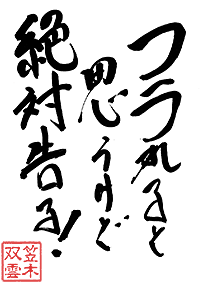 フラれると
思うけど
絶対告る!
笠木
双雲